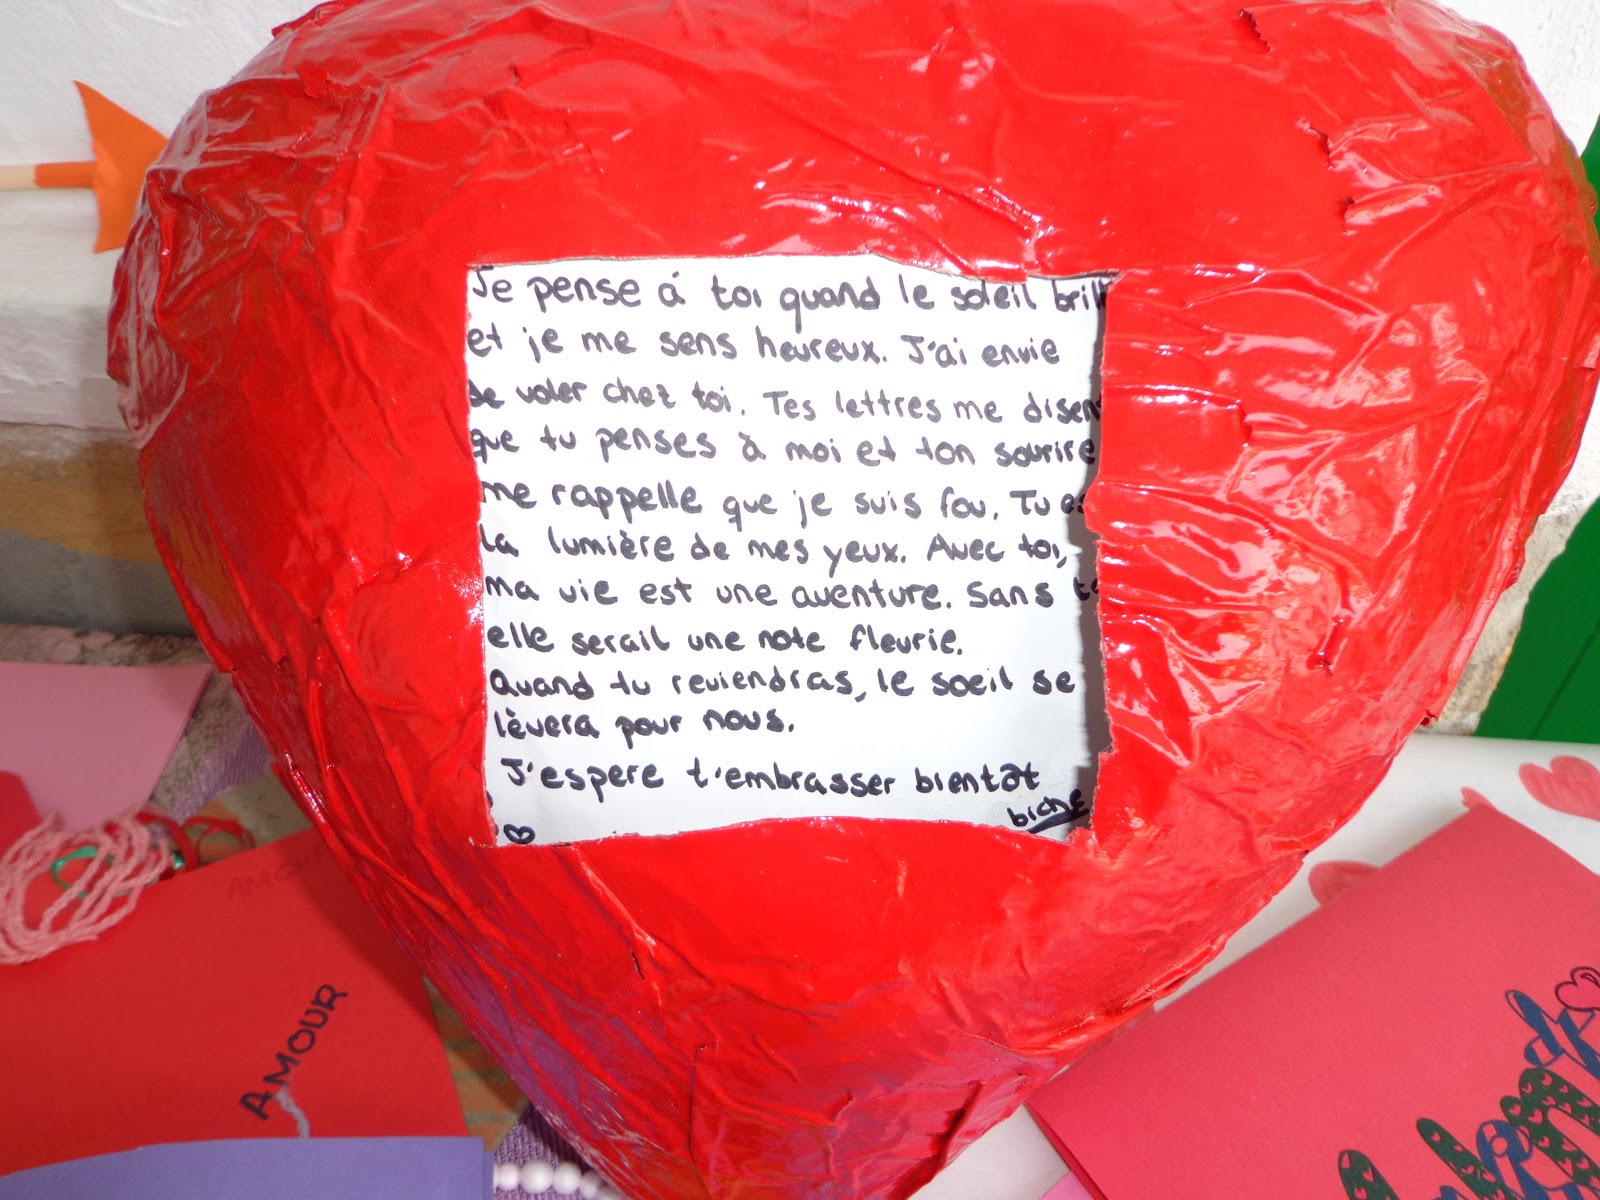 Je pense á toi quand le soleil brill
et je me sens heureux. J'ai envie
de voler chez toi. Tes lettres me disent
que tu penses à moi et ton sourire
me rappelle que je suis fou. Tu es
la lumière de mes yeux. Avec toi,
ma vie est une aventure. Sans
elle serait une note fleurie.
Quand tu reviendras, le soeil se
lèvera pour nous.
J'espere t'embrasser bientôt
biche
AMOUR
AMOUR